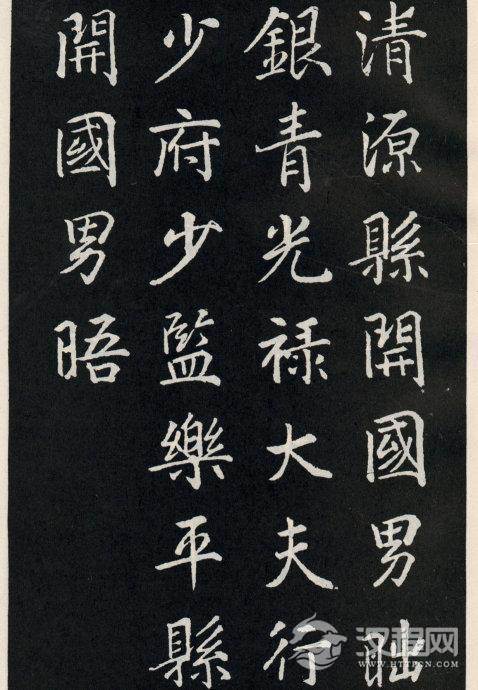 清源縣開國男昢
銀青光禄大夫行
少府少監樂平縣
開國男晤
汉程网
WWW.HTTPCN.COM